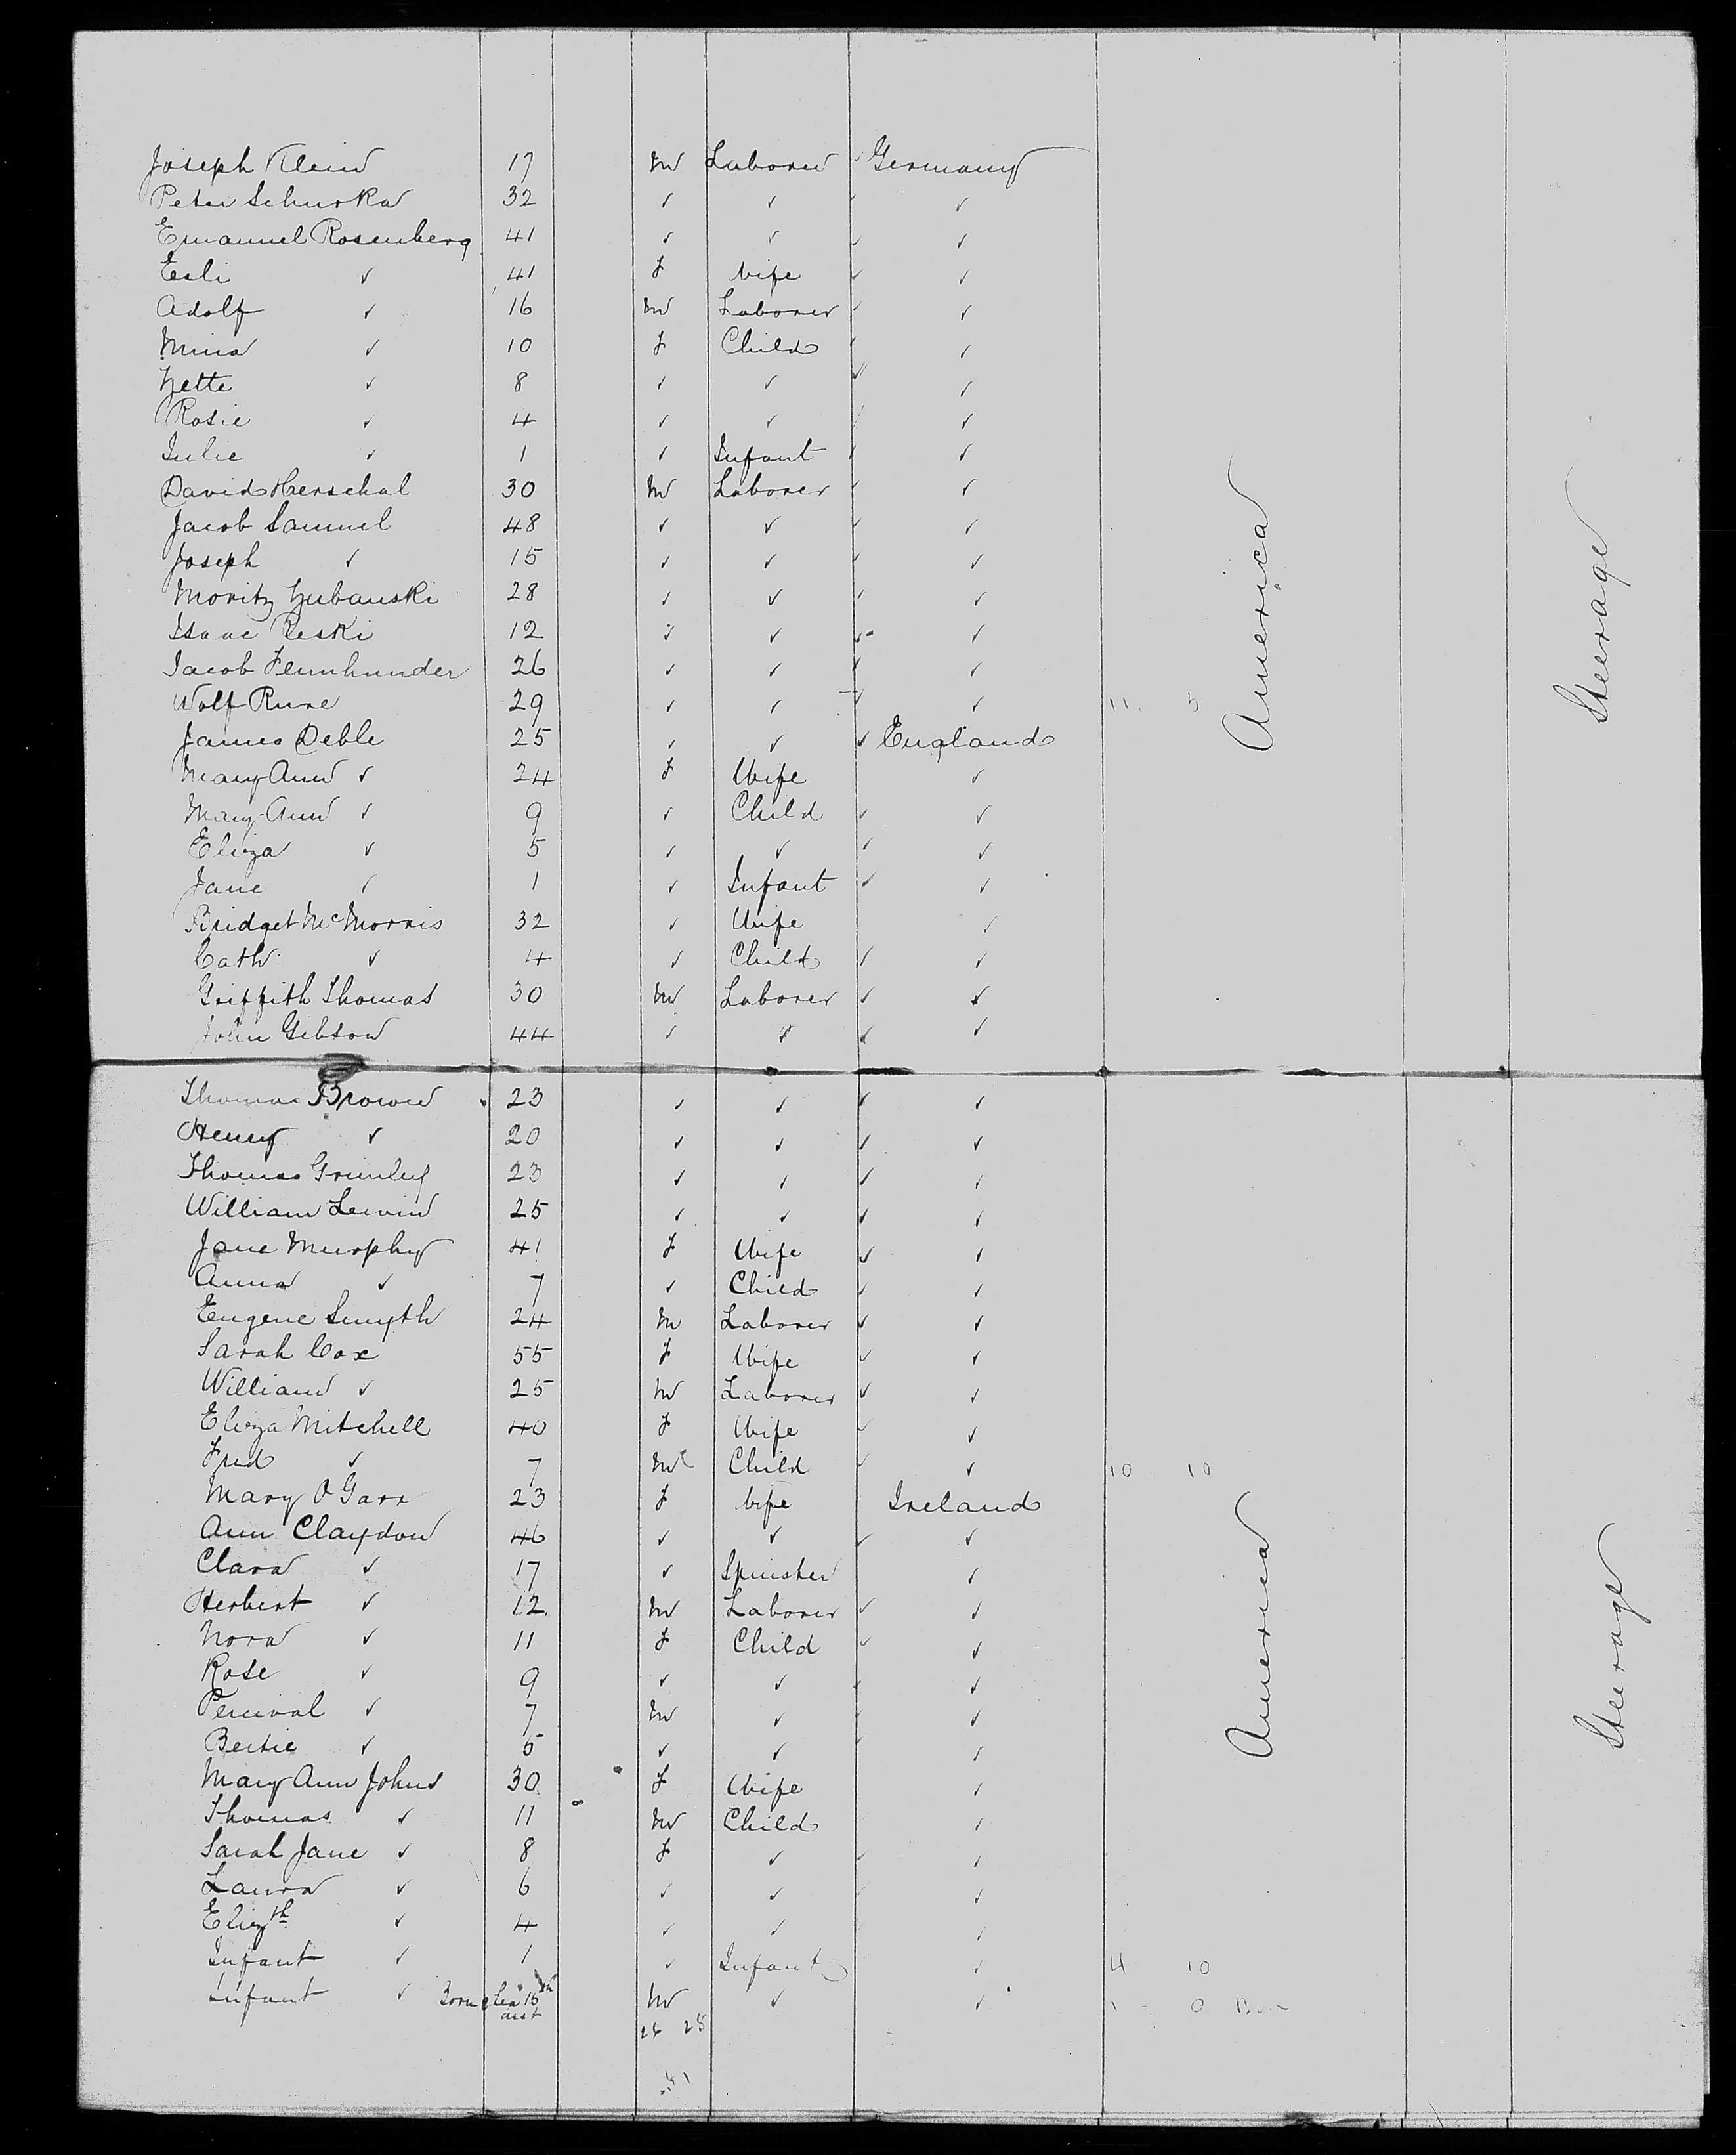 Joseph Klein 17 M Laborer ✓ Germany
Peter Schurka 32 ✓ ✓ ✓ ✓
Emanuel Rosenberg 41 ✓ ✓ ✓ ✓
Esli ✓ 41 F Wife ✓ ✓
Adolf ✓ 16 M Laborer ✓ ✓
Mina ✓ 10 F Child ✓ ✓
Zette ✓ 8 ✓ ✓ ✓ ✓
Rosie ✓ 4 ✓ ✓ ✓ ✓
Julie ✓ 1 ✓ Infant ✓ ✓
David Herschal 30 M Laborer ✓ ✓
Jacob Samuel 48 ✓ ✓ ✓ ✓
Joseph ✓ 15 ✓ ✓ ✓ ✓
Moritz Zubanski 28 ✓ ✓ ✓ ✓
Isaac Reski 12 ✓ ✓ ✓ ✓
Jacob 26 ✓ ✓ ✓ ✓
Wolf Rune 29 ✓ ✓ ✓ ✓ 11 5
James Deble 25 ✓ ✓ ✓ England
Mary Ann ✓ 24 F Wife ✓
Mary Ann ✓ 9 ✓ Child ✓ ✓
Eliza ✓ 5 ✓ ✓ ✓ ✓
Jane ✓ 1 ✓ Infant ✓ ✓
Bridget McMorris 32 ✓ Wife ✓
Cath ✓ 4 ✓ Child ✓ ✓
Griffith Thomas 30 M Laborer ✓ ✓
John Gibson 44 ✓ ✓ ✓ ✓
America
Steerage
Thomas Brown 23 ✓ ✓ ✓ ✓
Henry ✓ 20 ✓ ✓ ✓ ✓
Thomas Grimley 23 ✓ ✓ ✓ ✓
William Lewin 25 ✓ ✓ ✓ ✓
Jane Murphy 41 F Wife ✓ ✓
Anna ✓ 7 ✓ Child ✓ ✓
Eugene Smyth 24 M Laborer ✓ ✓
Sarah Cox 55 F Wife ✓ ✓
William ✓ 25 M Laborer ✓ ✓
Eliza Mitchell 40 F Wife ✓ ✓
Fred ✓ 7 M Child ✓ ✓ 10 10
Mary O'Gara 23 F Wife Ireland
Ann Claydon 46 ✓ ✓ ✓ ✓
Clara ✓ 17 ✓ Spinster ✓
Herbert ✓ 12 M Laborer ✓ ✓
Nora ✓ 11 F Child ✓ ✓
Rose ✓ 9 ✓ ✓ ✓ ✓
Percival ✓ 7 M ✓ ✓ ✓
Bertie ✓ 5 ✓ ✓ ✓ ✓
Mary Ann Johns 30 F Wife ✓
Thomas ✓ 11 M Child ✓
Sarah Jane ✓ 8 F ✓ ✓ ✓
Laura ✓ 6 ✓ ✓ ✓ ✓
Elizth ✓ 4 ✓ ✓ ✓
Infant ✓ 1 ✓ Infant ✓ 4 10
Infant ✓ Born Sea 15th M ✓ ✓ 1 0
26 25
America
Steerage